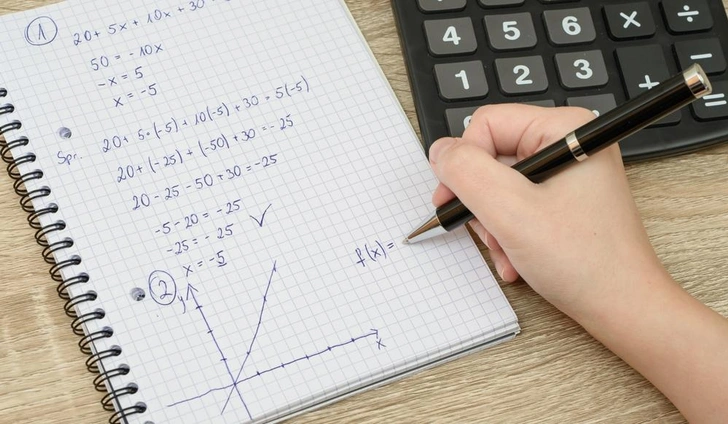 1
20 + 5x + 10x + 30
50 = -10x
-x = 5
x = -5
Spr. 20 + 5·(-5) + 10(-5) + 30 = 5(-5)
20 + (-25) + (-50) + 30 = -25
20 - 25 - 50 + 30 = -25
-5 - 20 = -25
-25 = -25 ✓
x = -5
2
y
x
f(x) =
4 5 6 × ÷
1 2 3 + −
=